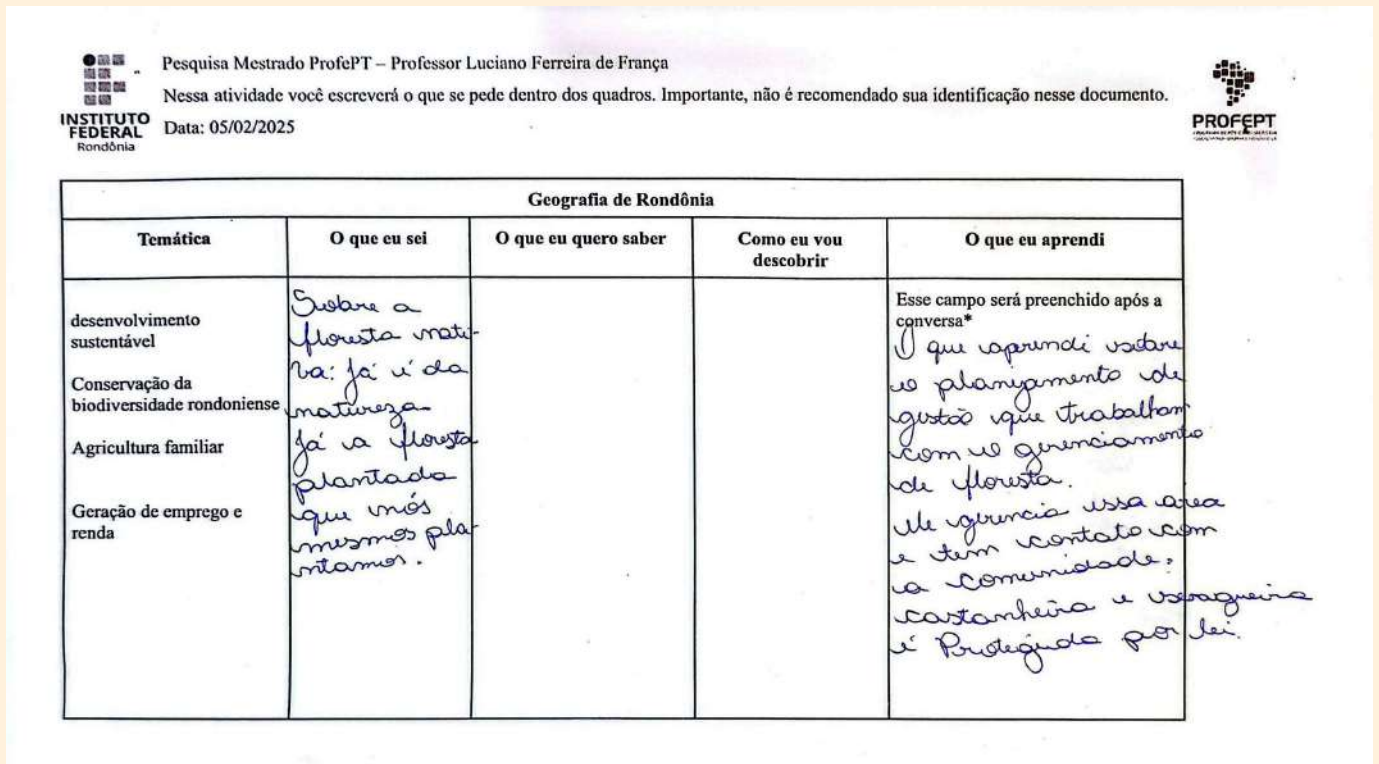 Pesquisa Mestrado ProfePT – Professor Luciano Ferreira de França
Nessa atividade você escreverá o que se pede dentro dos quadros. Importante, não é recomendado sua identificação nesse documento.
Data: 05/02/2025
INSTITUTO
FEDERAL
Rondônia
PROFEPT
Geografia de Rondônia
Temática
O que eu sei
O que eu quero saber
Como eu vou
descobrir
O que eu aprendi
desenvolvimento
sustentável
Conservação da
biodiversidade rondoniense
Agricultura familiar
Geração de emprego e
renda
Sobre a
floresta nati-
va: já é da
natureza
Já a floresta
plantada
que nós
mesmos pla-
ntamos.
Esse campo será preenchido após a
conversa*
O que aprendi sobre
o planejamento de
gestão que trabalham
com o gerenciamento
de floresta.
ele gerencia essa area
e tem contato com
a comunidade.
castanheira e seragueira
é Protegida por lei.